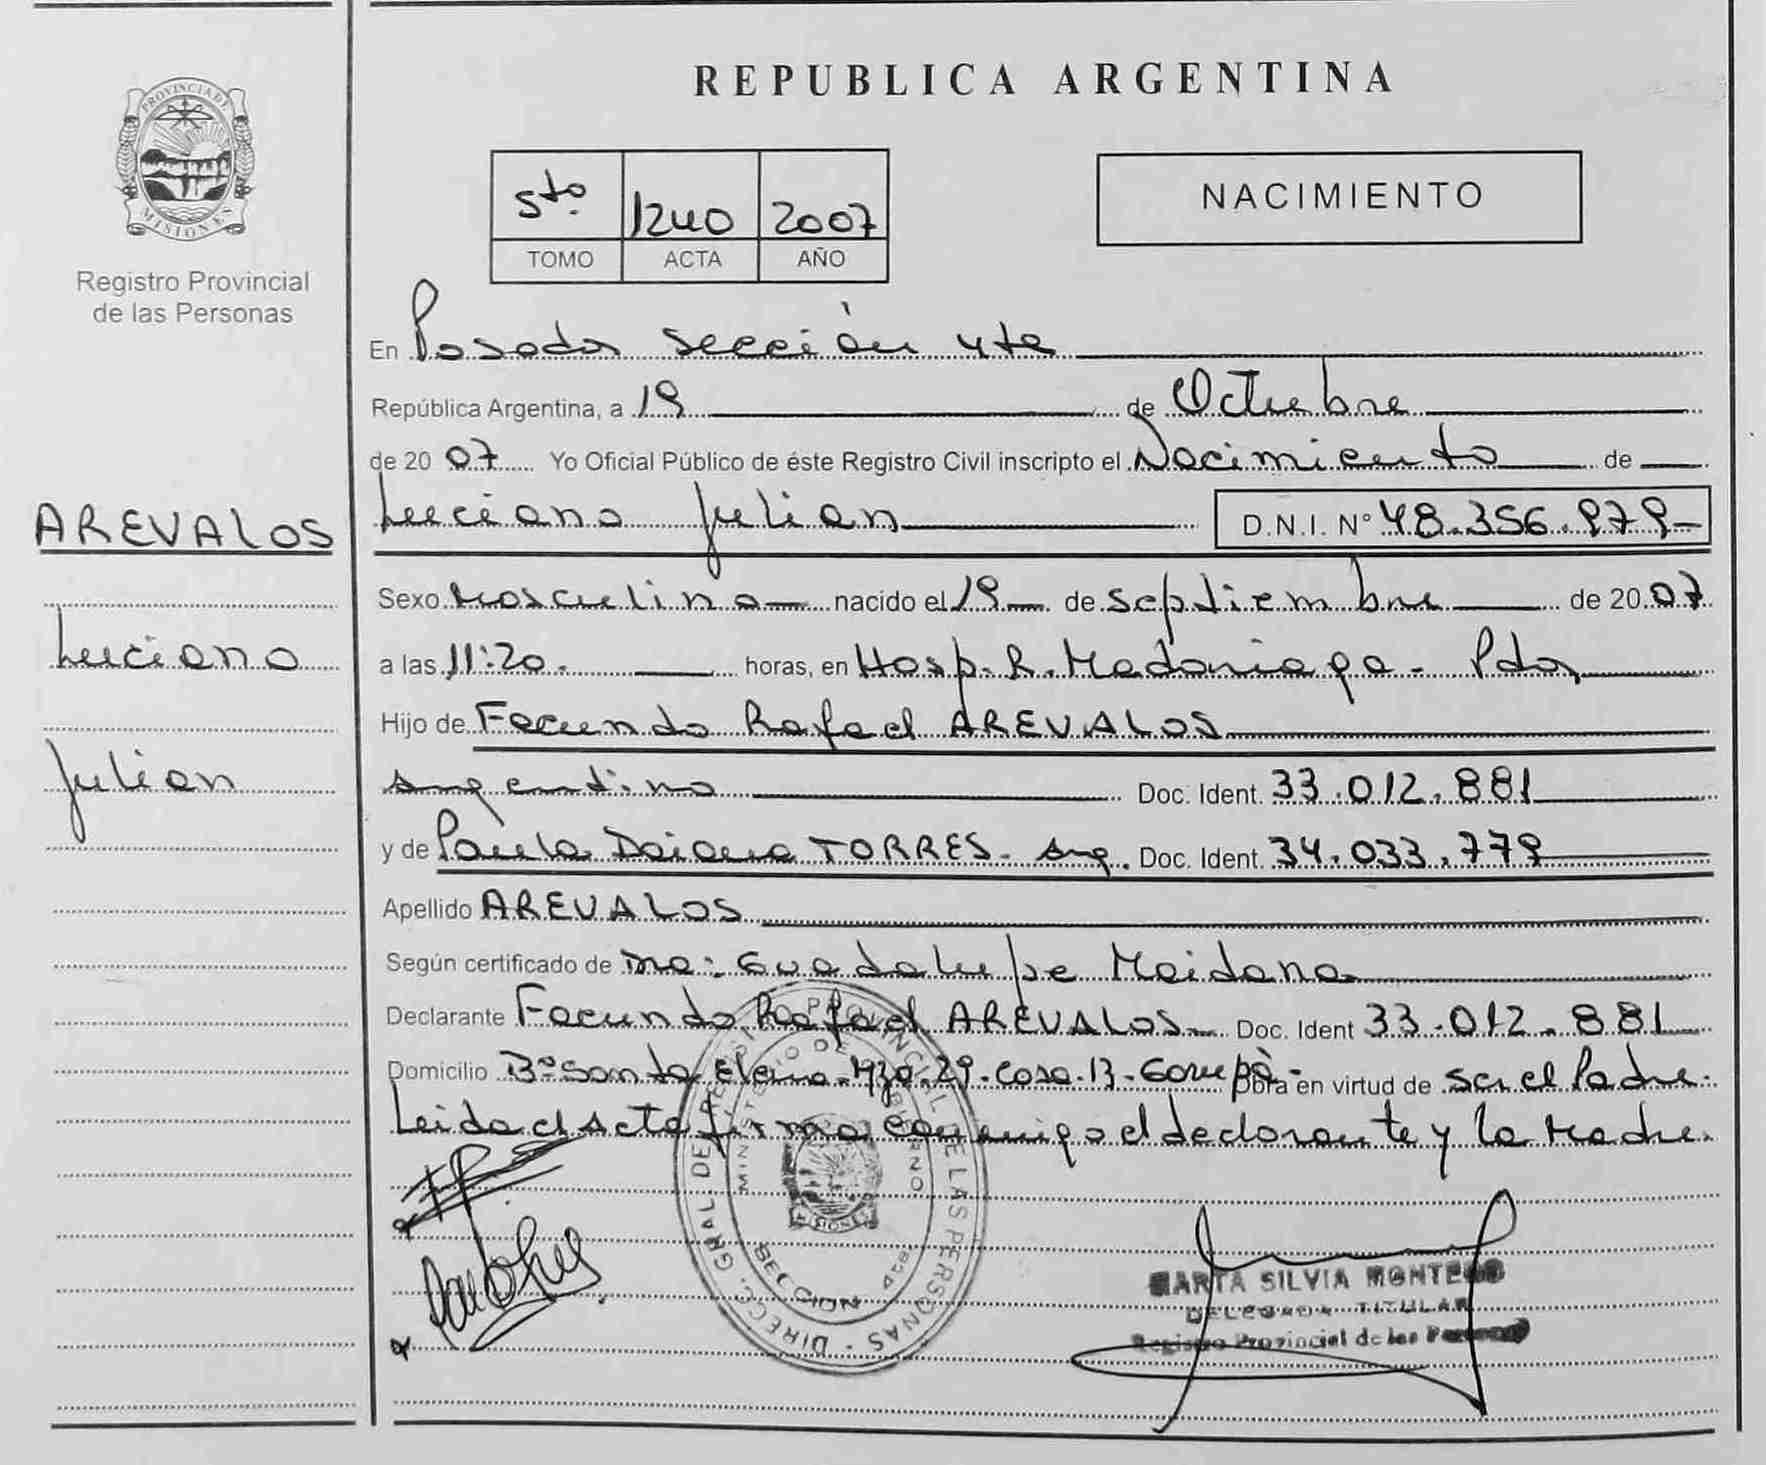 PROVINCIA DE
MISIONES
Registro Provincial
de las Personas
AREVALOS
Luciano
Julian
REPUBLICA ARGENTINA
5to. 1240 2007
TOMO ACTA AÑO
NACIMIENTO
En Posadas sección 4ta
República Argentina, a 19 de Octubre
de 20 07 Yo Oficial Público de éste Registro Civil inscripto el Nacimiento de
Luciano Julian D.N.I. Nº 48.356.979-
Sexo Masculino nacido el 19 de septiembre de 20 07
a las 11:20. horas, en Hosp. R. Madariaga - Pdas
Hijo de Facundo Rafael AREVALOS
argentino Doc. Ident. 33.012.881
y de Paula Daiana TORRES - arg. Doc. Ident. 34.033.779
Apellido AREVALOS
Según certificado de Dra: Guadalupe Maidana
Declarante Facundo Rafael AREVALOS Doc. Ident 33.012.881
Domicilio Bº Santa Elena. Mza. 29. Casa. 13 - Garupà - Obra en virtud de ser el Padre.
Leida el Acta firma conmigo el declarante y la Madre.
DIRECC. GRAL DE REGISTRO PROVINCIAL DE LAS PERSONAS -
MINISTERIO DE GOBIERNO
MISIONES
SECCION 4ta
MARTA SILVIA MONTERO
DELEGADA TITULAR
Registro Provincial de las Personas